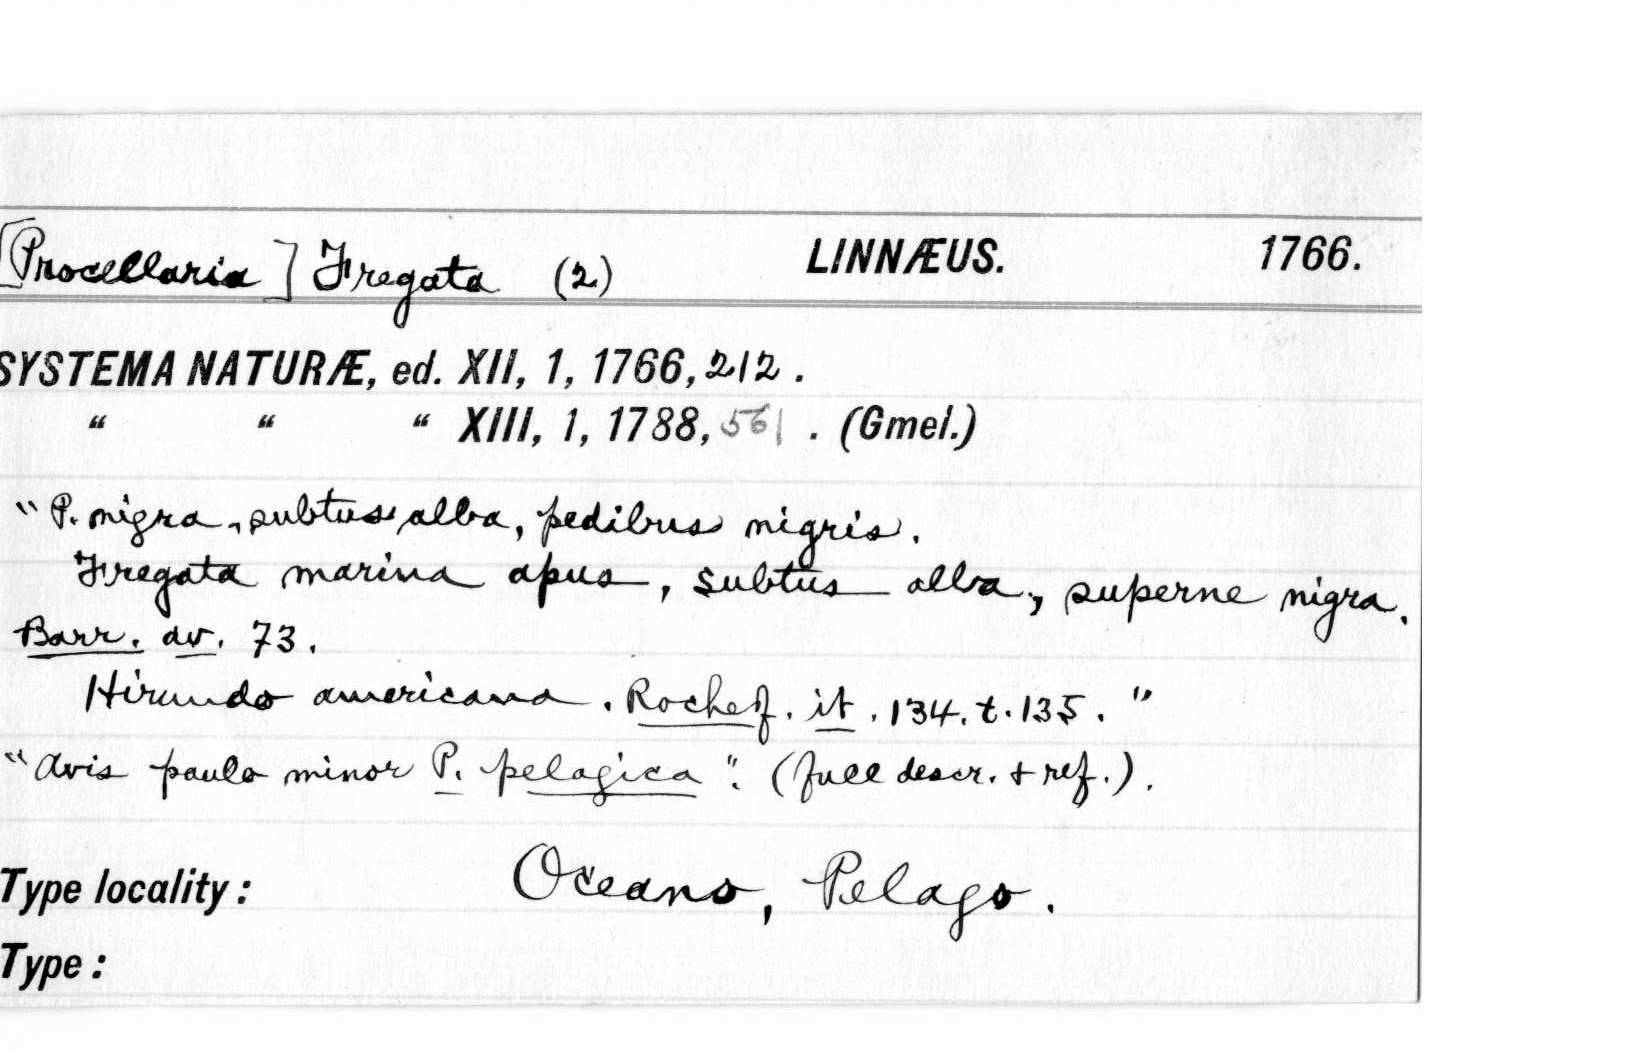 [Procellaria] Fregata (2) LINNÆUS. 1766.
SYSTEMA NATURÆ, ed. XII, 1, 1766, 212.
“ “ “ XIII, 1, 1788, 561. (Gmel.)
"P. nigra, subtus alba, pedibus nigris.
Fregata marina apus, subtus alba, superne nigra.
Barr. av. 73.
Hirundo americana. Rochef. it. 134. t. 135."
"Avis paulo minor P. pelagica". (full descr. + ref.).
Type locality: Oceano, Pelago.
Type: